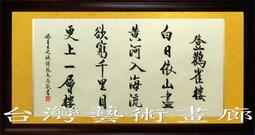 登鸛雀樓
白日依山盡
黃河入海流
欲窮千里目
更上一層樓
台灣藝術畫廊